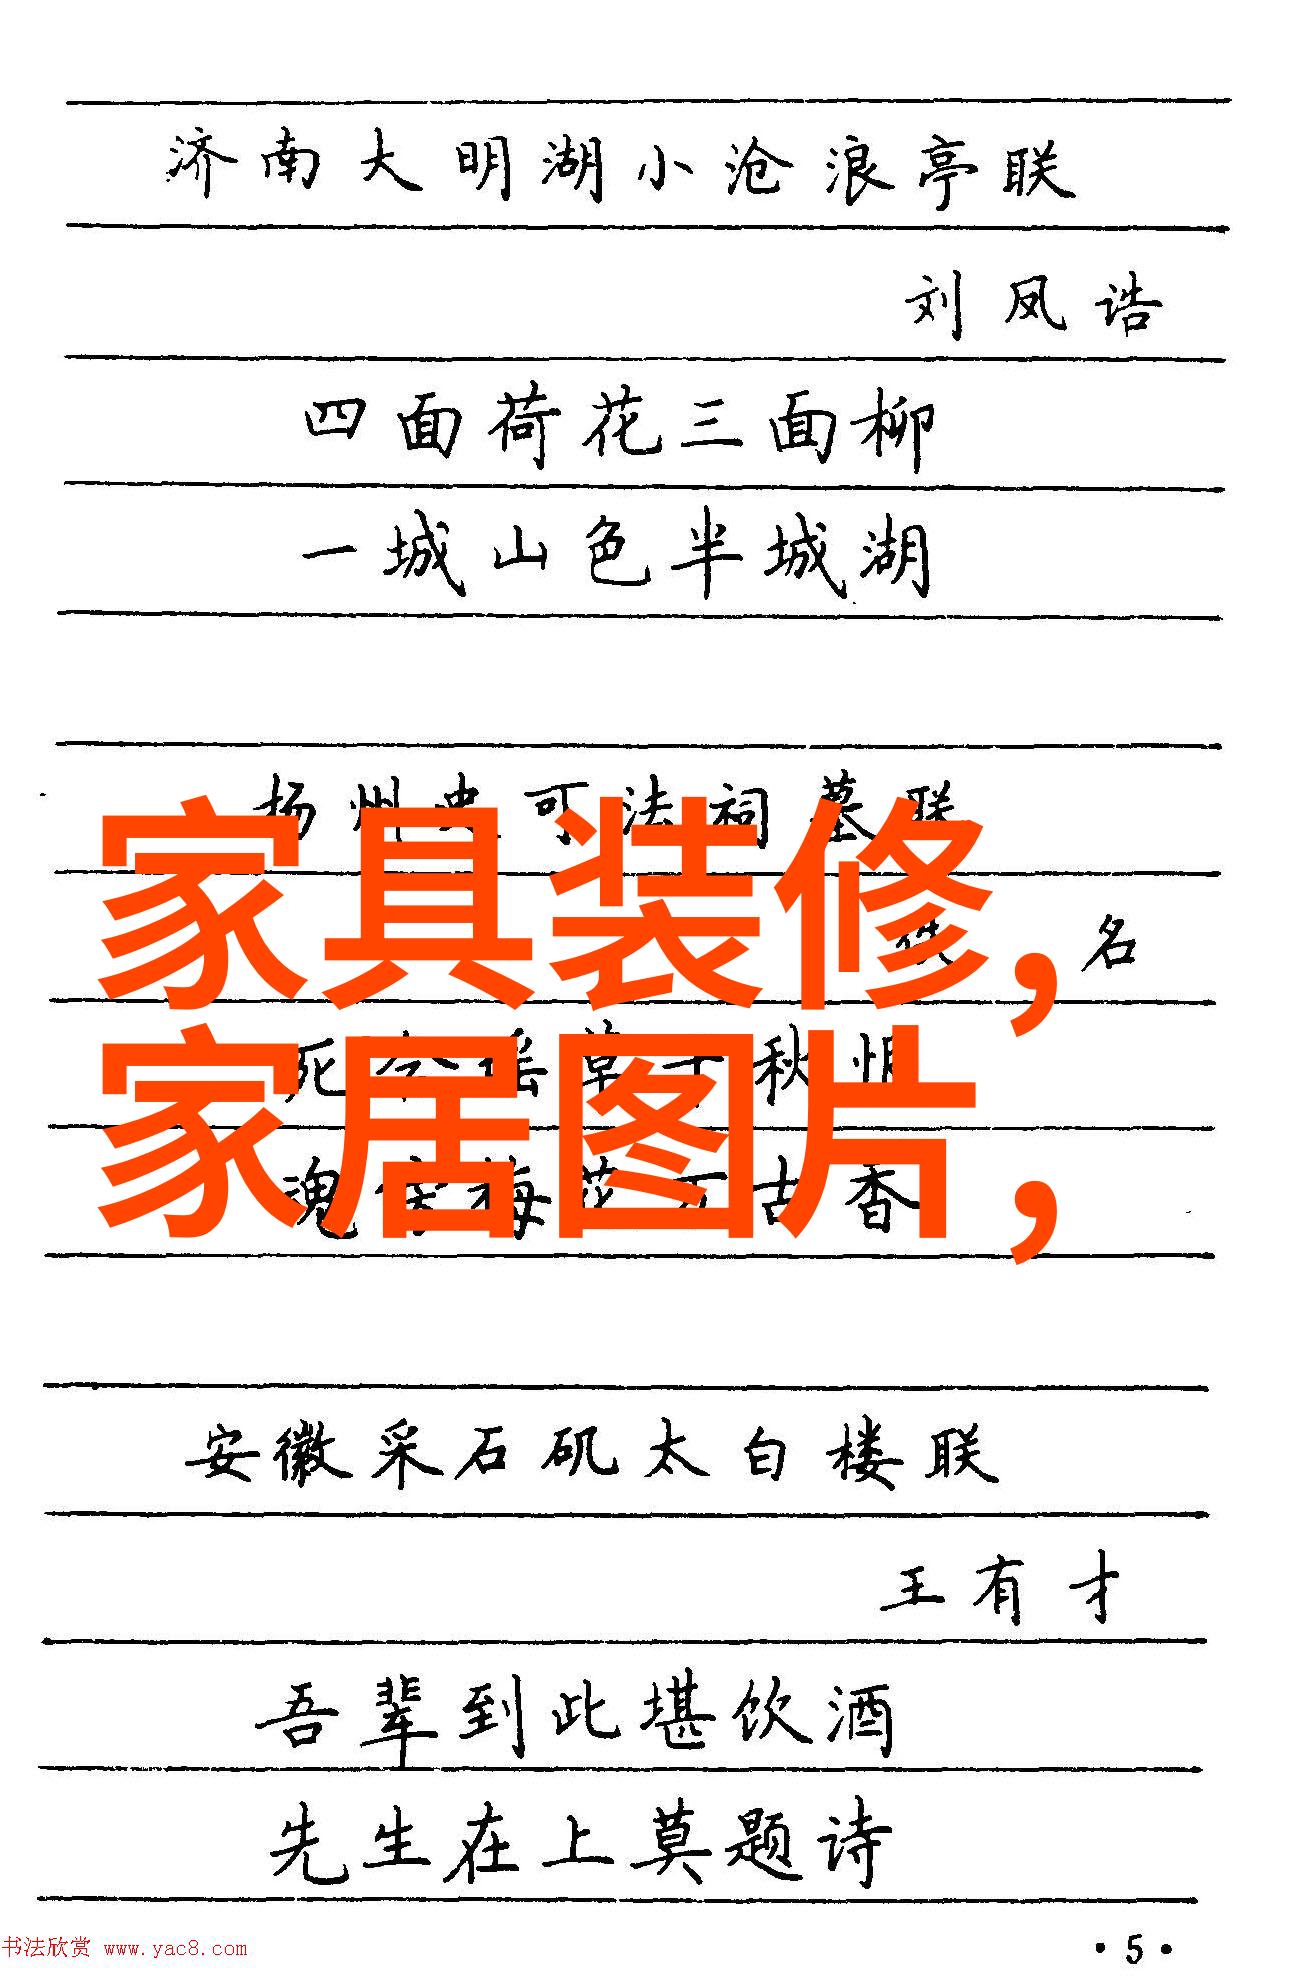 济南大明湖小沧浪亭联
刘凤诰
四面荷花三面柳
一城山色半城湖
扬州史可法祠墓联
名
家具装修,
死瑶草千秋恨
家居图片,
魂梅花万古香
安徽采石矶太白楼联
王有才
吾辈到此堪饮酒
先生在上莫题诗
书法欣赏 www.yac8.com
·5·